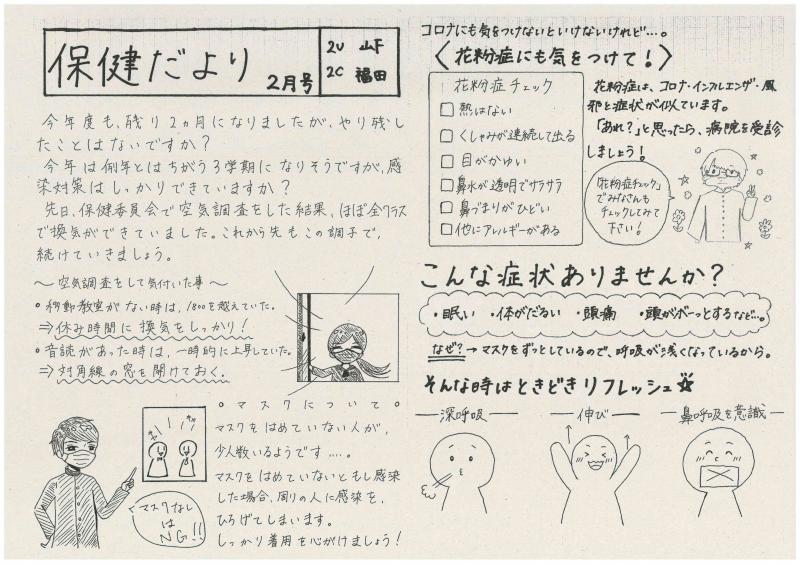 保健だより 2月号
2U 山下
2C 福田
今年度も、残り2ヵ月になりましたが、やり残し
たことはないですか?
今年は例年とはちがう3学期になりそうですが、感
染対策はしっかりできていますか?
先日、保健委員会で空気調査をした結果、ほぼ全クラス
で換気ができていました。これから先もこの調子で、
続けていきましょう。
〜空気調査をして気付いた事〜
・移動教室がない時は、1800を越えていた。
⇒休み時間に換気をしっかり!
・音読があった時は、一時的に上昇していた。
⇒対角線の窓を開けておく。
○マスクについて○
マスクをはめていない人が、
少人数いるようです….。
マスクをはめていないともし感染
した場合、周りの人に感染を、
ひろげてしまいます。
しっかり着用を心がけましょう!
マスクなし
は
NG!!
コロナにも気をつけないといけないけれど…。
〈花粉症にも気をつけて!〉
花粉症チェック
□熱はない
□くしゃみが連続して出る
□目がかゆい
□鼻水が透明でサラサラ
□鼻づまりがひどい
□他にアレルギーがある
花粉症は、コロナ・インフルエンザ・風
邪と症状が似ています。
「あれ?」と思ったら、病院を受診
しましょう!
「花粉症チェック」
でみなさんも
チェックしてみて
下さい!
こんな症状ありませんか?
・眠い ・体がだるい ・頭痛 ・頭がボーっとするなど…。
なぜ?→マスクをずっとしているので、呼吸が浅くなっているから。
そんな時はときどきリフレッシュ☆
―深呼吸― ―伸び― ―鼻呼吸を意識―